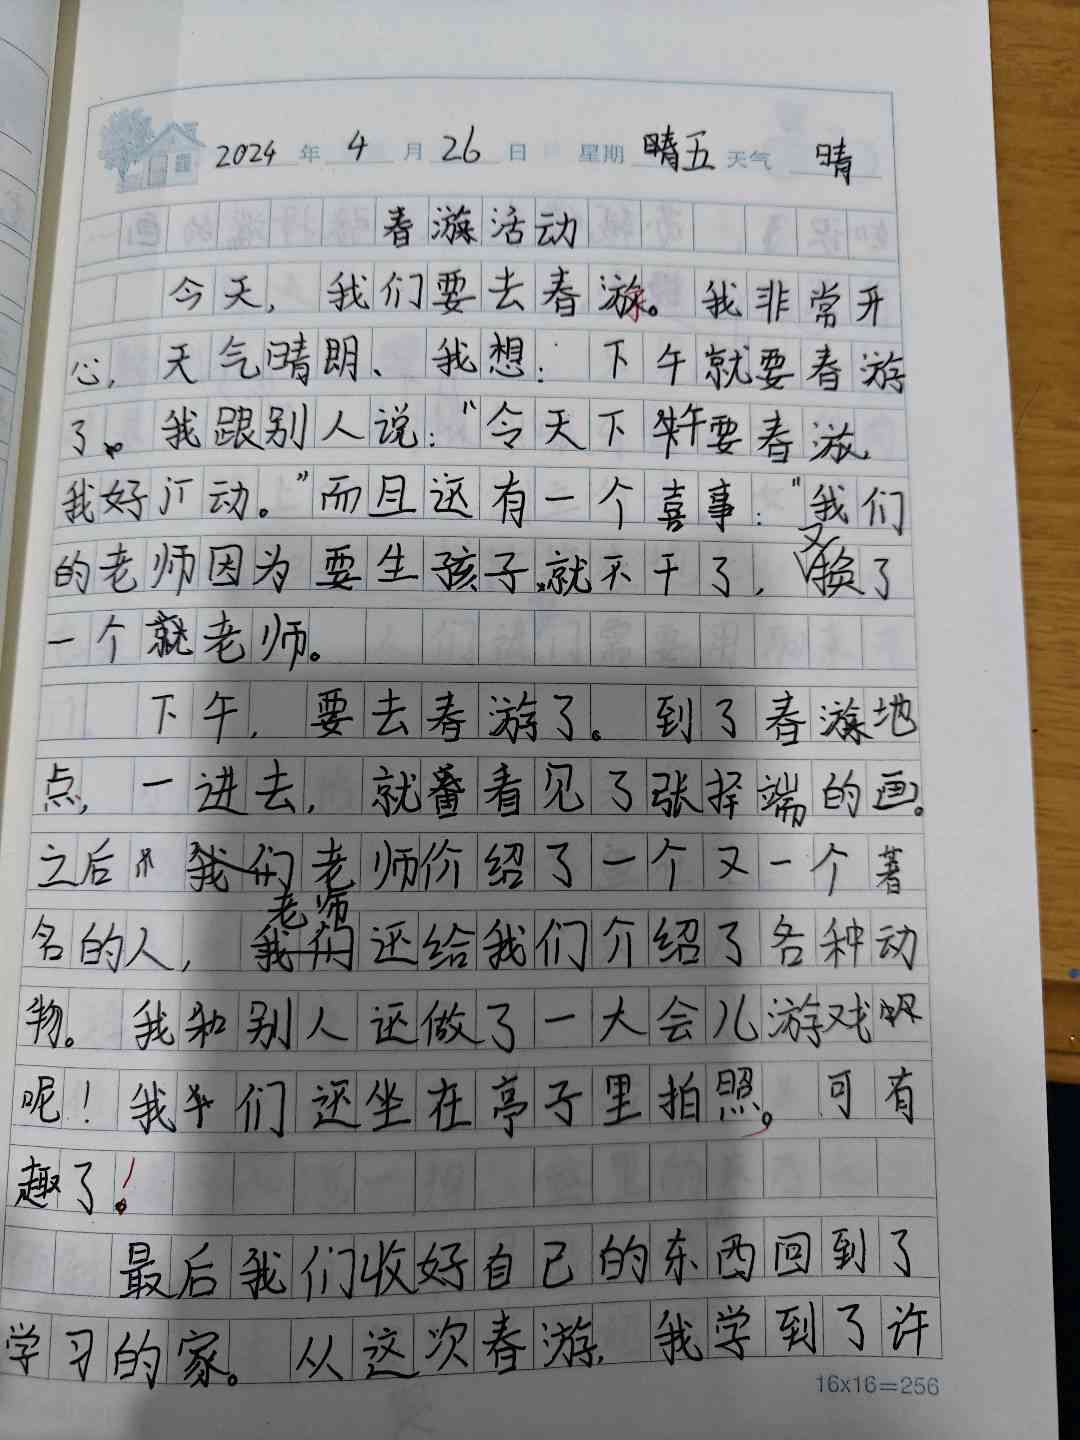 2024年4月26日 星期晴五天气 晴
春游活动
今天，我们要去春游。我非常开
心，天气晴朗、我想：下午就要春游
了。我跟别人说：“今天下午要春游，
我好汀动。”而且还有一个喜事：“我们
的老师因为要生孩子，就不干了，又换了
一个就老师。
下午，要去春游了。到了春游地
点，一进去，就番看见了张择端的画。
之后我们老师价绍了一个又一个著
老师
名的人，我们还给我们介绍了各种动
物。我和别人还做了一大会儿游戏
呢！我们还坐在亭子里拍照。可有
趣了！
最后我们收好自己的东西回到了
学习的家。从这次春游，我学到了许
16x16=256